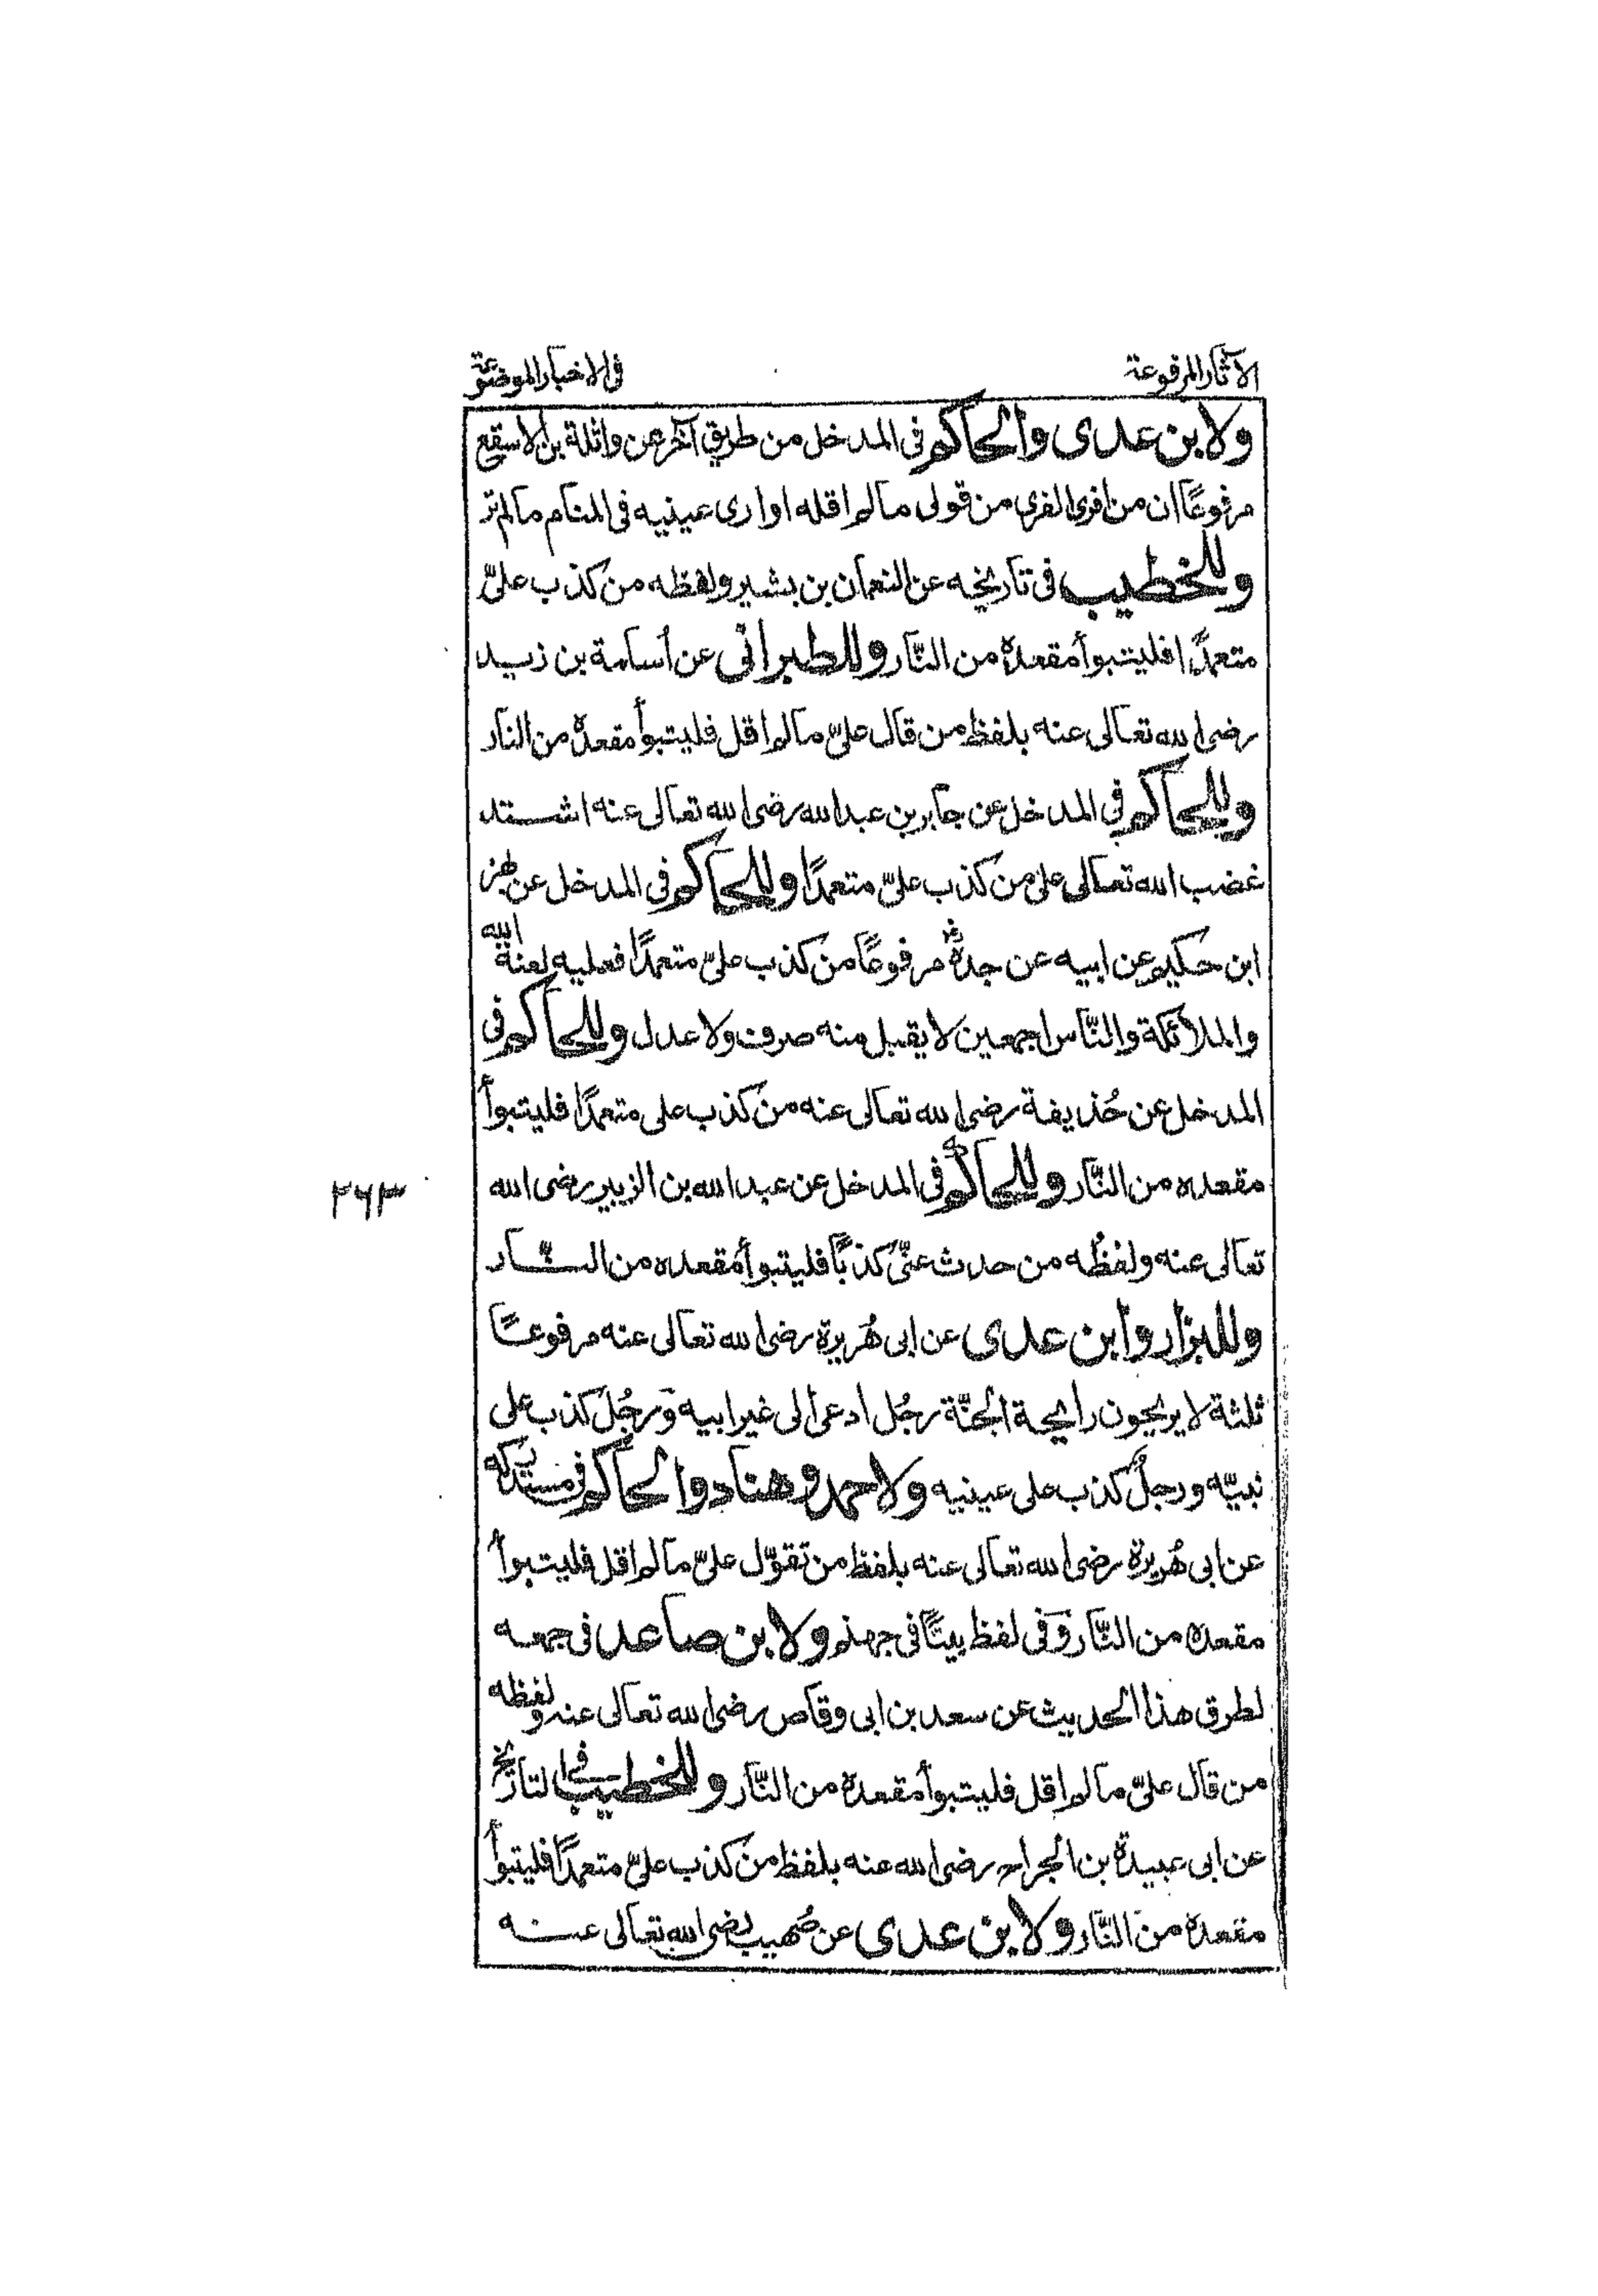 الآثار المرفوعة
في الاخبار الموضوعة
ولابن عدى والحاكم في المدخل من طريق آخر عن واثلة بن الاسقع
مرفوعًا ان من افرى الفرى من قولى مالم اقله او ارى عينيه فى المنام مالم تر
وللخطيب فى تاريخه عن النعمان بن بشير ولفظه من كذب علىّ
متعمدًا فليتبوأ مقعدة من النّار وللطبرانى عن أسامة بن زيد
رضى الله تعالى عنه بلفظ من قال علىّ مالم اقل فليتبوأ مقعدة من النار
وللحاكم في المدخل عن جابر بن عبد الله رضى الله تعالى عنه اشتد
غضب الله تعالى على من كذب علىّ متعمدًا وللحاكم فى المدخل عن بهز
ابن حكيم عن ابيه عن جدهٖ مرفوعًا من كذب علىّ متعمدًا فعليه لعنة الله
والملآئكة والنّاس اجمعين لا يقبل منه صرف ولا عدل وللحاكم فى
المدخل عن حُذيفة رضى الله تعالى عنه من كذب على متعمدًا فليتبوأ
مقعده من النّار وللحاكم فى المدخل عن عبد الله بن الزبير رضى الله
تعالى عنه ولفظُه من حدث عنّى كذبًا فليتبوأ مقعده من النّار
وللبزار وابن عدى عن ابى هُريرة رضى الله تعالى عنه مرفوعًا
ثلثة لا يريحون رائحة الجنّة رجُل ادعى الى غير ابيه وَرجُل كذب على
نبيّه ورجلٌ كذب على عينيه ولاحمد وهناد والحاكم فى مستدركه
عن ابى هُريرة رضى الله تعالى عنه بلفظ من تقوّل علىّ مالم اقل فليتبوأ
مقعده من النّار وَفى لفظ بيتًا فى جهنم ولابن صاعد فى جمعه
لطرق هذا الحديث عن سعد بن ابى وقاص رضى الله تعالى عنه ولفظه
من قال علىّ مالم اقل فليتبوأ مقعدة من النّار وللخطيب فى التاريخ
عن ابى عبيدة بن الجراح رضى الله عنه بلفظ من كذب علىّ متعمدًا فليتبوأ
مقعدة من النّار ولابن عدى عن صُهيب رضى الله تعالى عنه
۲۶۳